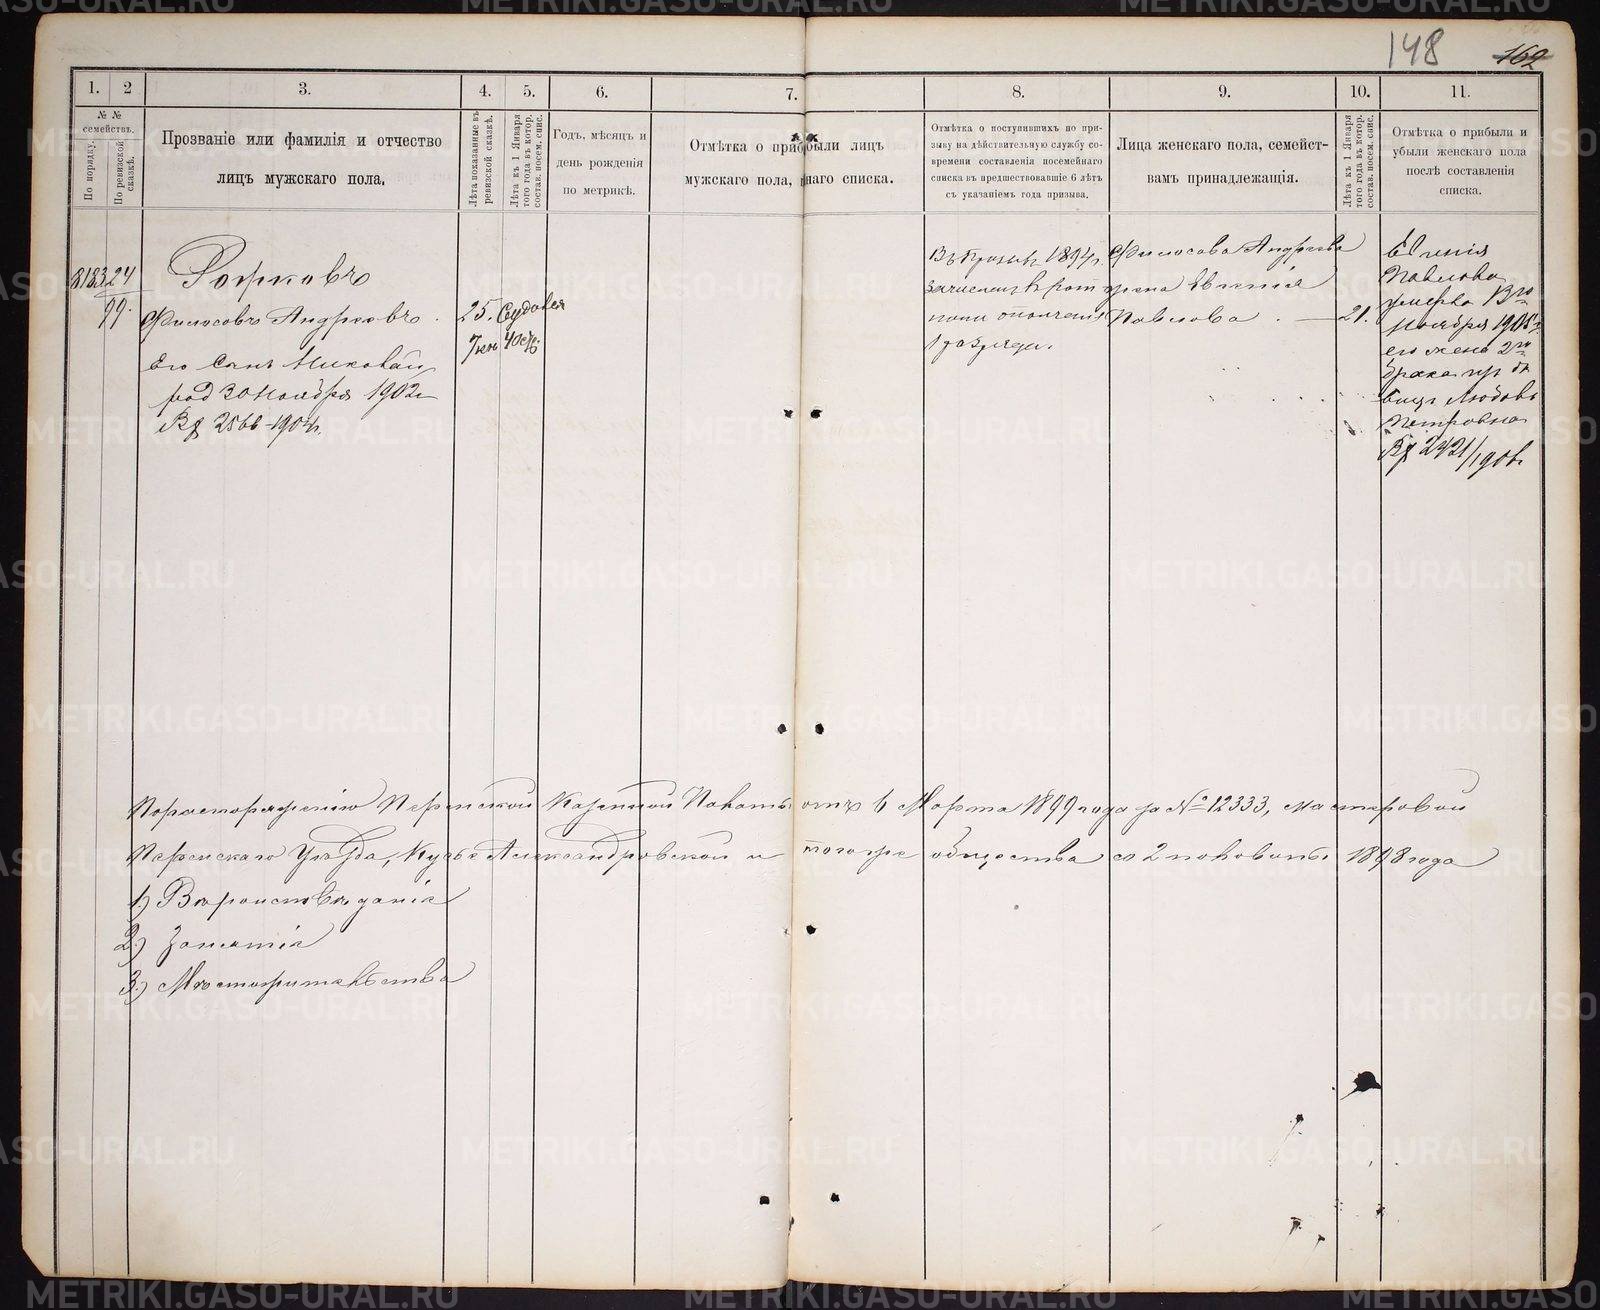 148
162
1.
2
3.
4.
5.
6.
7.
8.
9.
10.
11.
№ №
семействъ.
По порядку.
По ревизской
сказкѣ.
Прозваніе или фамилія и отчество
лицъ мужскаго пола.
Лѣта показанные въ
ревизской сказкѣ.
Лѣта къ 1 Января
того года въ котор.
состав. посем. спис.
Годъ, мѣсяцъ и
день рожденія
по метрикѣ.
Отмѣтка о прибыли лицъ
мужскаго пола, наго списка.
Отмѣтка о поступившихъ по при-
зыву на дѣйствительную службу со-
времени составленія посемейнаго
списка въ предшествовавшіе 6 лѣтъ
съ указаніемъ года призыва.
Лица женскаго пола, семейст-
вамъ принадлежащія.
Лѣта къ 1 Января
того года въ котор.
состав. посем. спис.
Отмѣтка о прибыли и
убыли женскаго пола
послѣ составленія
списка.
8183 24
99.
Филосовъ Андреевъ 25.
Его Сынъ Николай
род 30 Ноября 1902 г
Вх 2566-1904 г.
Въ Призывъ 1894 г.
зачисленъ въ рат
ники ополченія
1 разряда.
Филосова Андреева
жена Евгенія
Павлова. — 21.
Евгенія
Павлова
умерла
Ноября 1905 г.
его жена 2го
брака
Любовь
Петровна
Вх 2421/1906 г
По распоряженію Пермской Казенной Палаты отъ 6 Марта 1899 года за № 12333, мастеровой
Пермскаго Уѣзда, Кусье Александровской и того же общества со 2 половины 1898 года
1.) Вѣроисповѣданія
2.) Занятія
3.) Мѣстожительства
METRIKI.GASO-URAL.RU